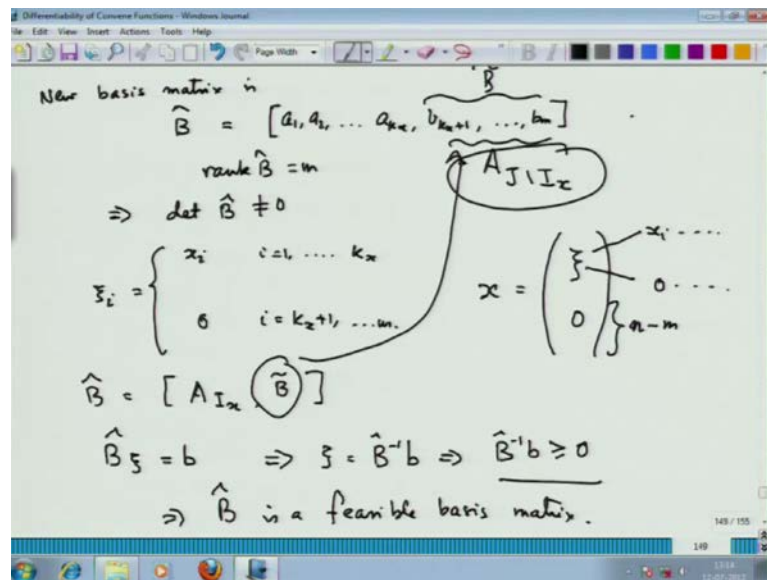 Differentiability of Convene Functions - Windows Journal
File Edit View Insert Actions Tools Help
Page Width
B̃
New basis matrix is
B̂ = [a₁, a₂, ... a_{kₓ}, b_{kₓ+1}, ..., bₘ]
rank B̂ = m
A_{J\Iₓ}
⇒ det B̂ ≠ 0
ξᵢ = { xᵢ i=1, .... kₓ
0 i = kₓ+1, ...m.
x = ( ξ 0 ) xᵢ .... 0 .... } n-m
B̂ = [ A_{Iₓ} B̃ ]
B̂ξ = b ⇒ ξ = B̂⁻¹b ⇒ B̂⁻¹b ≥ 0
⇒ B̂ is a feasible basis matrix.
149 / 155
149
13:14
12-07-2012